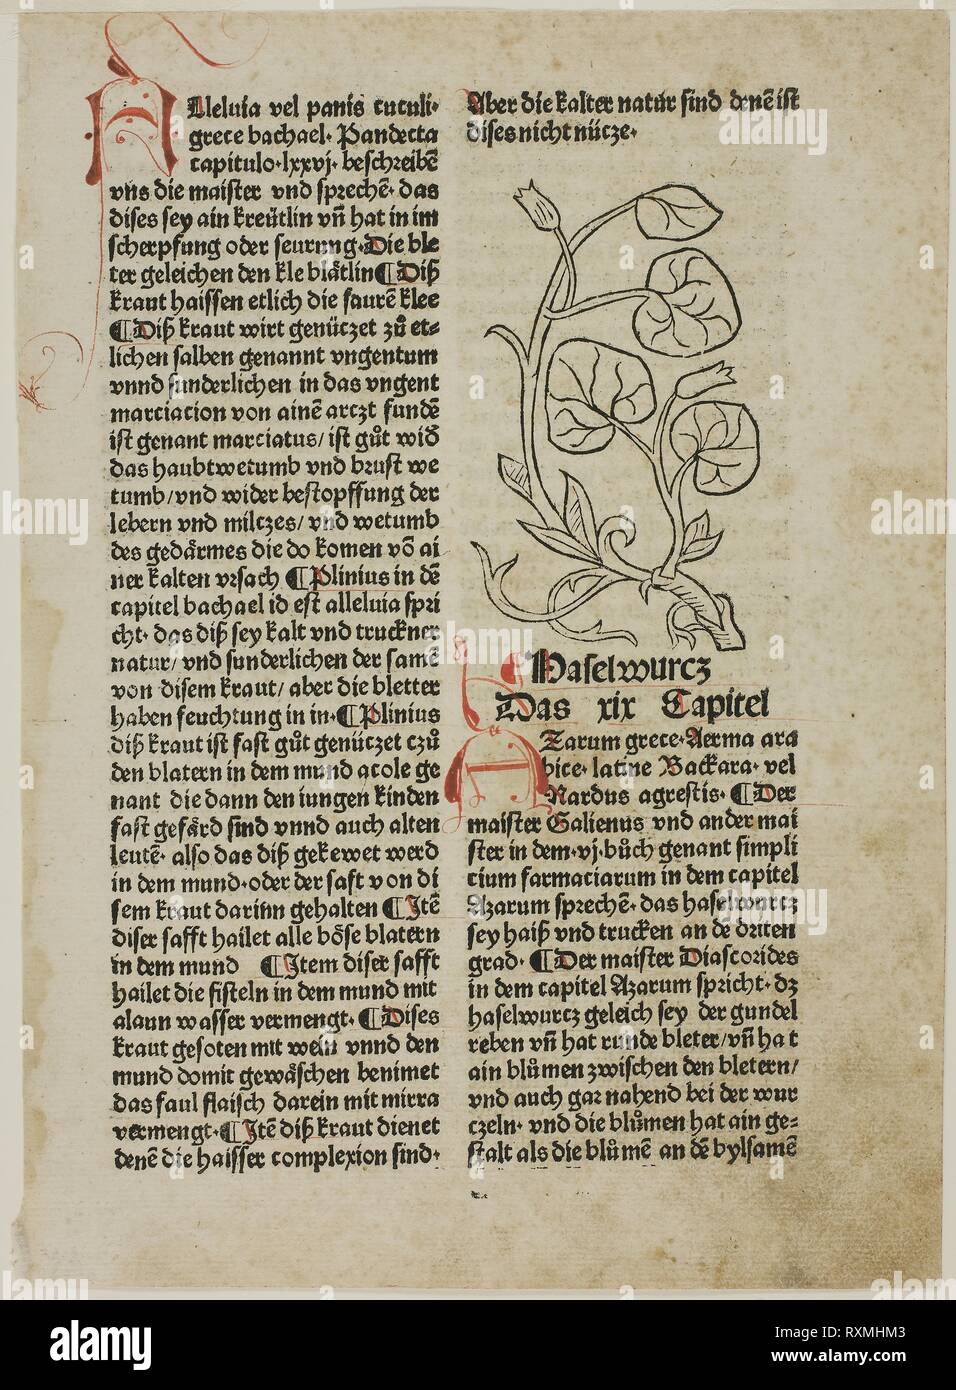 Alleluia vel panis cuculi·
grece bachael· Pandecta
capitulo·lxxvj· beschreibē
vns die maister vnd sprechē· das
dises sey ain kreütlin vn̄ hat in im
scherpfung oder seurung·Die ble
ter geleichen den kle blätlin¶Diß
kraut haissen etlich die faurē klee
¶Diß kraut wirt genüczet zů et⸗
lichen salben genannt vngentum
vnnd sunderlichen in das vngent
marciacion von ainē arczt fundē
ist genant marciatus/ ist gůt wid͛
das haubtwetumb vnd brust we
tumb/vnd wider bestopffung der
lebern vnd milczes/ vnd wetumb
des gedärmes die do komen vō ai
ner kalten vrsach ¶Plinius in dē
capitel bachael id est alleluia spri
cht· das diß sey kalt vnd truckner
natur/ vnd sunderlichen der samē
von disem kraut/ aber die bletter
haben feuchtung in in·¶Plinius
diß kraut ist fast gůt genüczet czů
den blatern in dem mund acole ge
nant die dann den iungen kinden
fast gefärd sind vnnd auch alten
leutē· also das diß gekewet werd
in dem mund·oder der saft von di
sem kraut darinn gehalten ¶Itē
diser safft hailet alle böse blatern
in dem mund ¶Item diser safft
hailet die fisteln in dem mund mit
alaun wasser vermengt· ¶Dises
kraut gesoten mit wein vnnd den
mund domit gewäschen benimet
das faul flaisch darein mit mirra
vermengt·¶Itē diß kraut dienet
denē die haisser complexion sind·
Aber die kalter natur sind denē ist
dises nicht nücze·
Haselwurcz
Das xix Capitel
Azarum grece·Aerma ara
bice· latine Backara· vel
Nardus agrestis· ¶Der
maister Galienus vnd ander mai
ster in dem·vj·bůch genant simpli
cium farmaciarum in dem capitel
Azarum sprechē· das haselwurcz
sey haiß vnd trucken an de driten
grad· ¶Der maister Diascorides
in dem capitel Azarum spricht· dz
haselwurcz geleich sey der gundel
reben vn̄ hat runde bleter/vn̄ hat
ain blůmen zwischen den bletern/
vnd auch gar nahend bei der wur
czeln· vnd die blůmen hat ain ge⸗
stalt als die blůmē an dē bylsamē
alamy
Image ID: RXMHM3
www.alamy.com